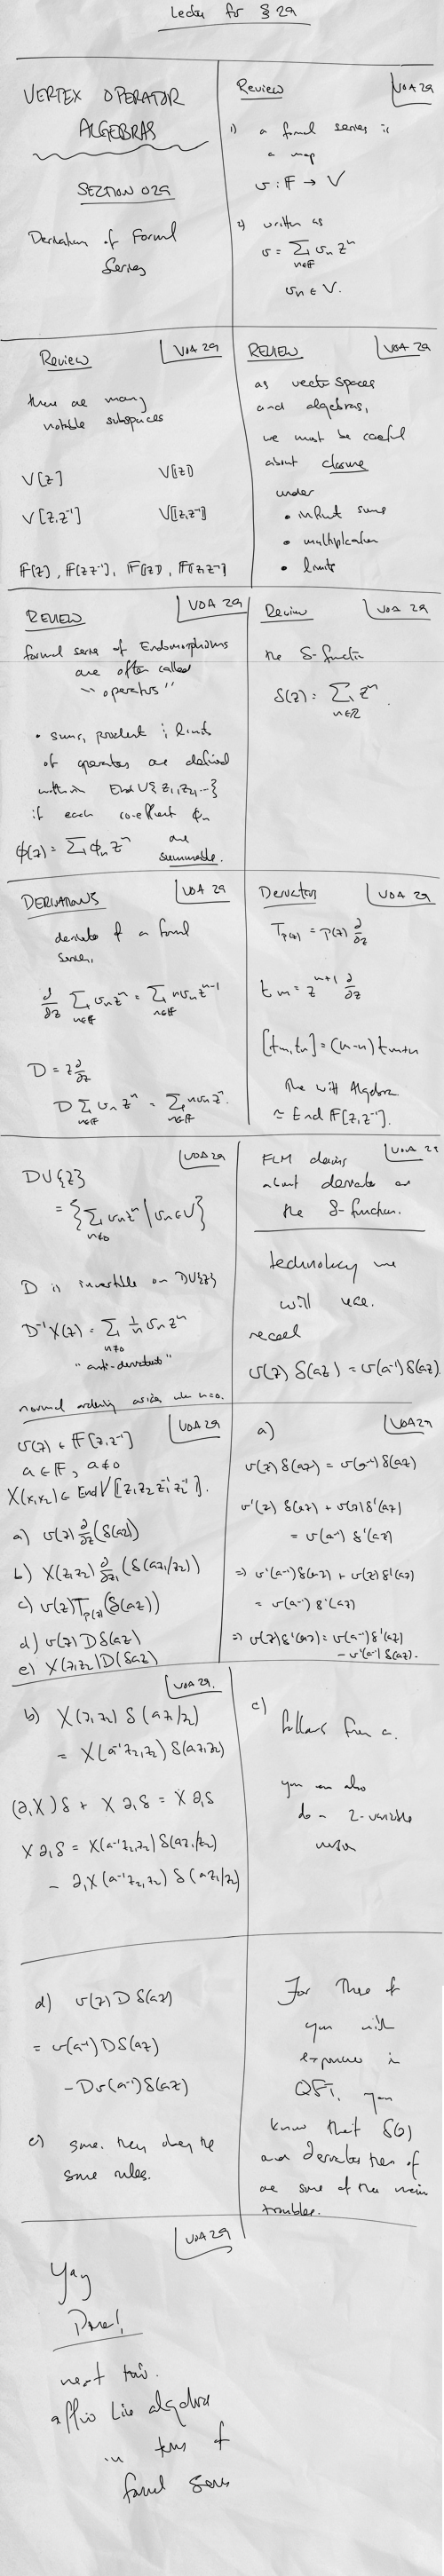 Lecture for § 29
VERTEX OPERATOR
ALGEBRAS
SECTION 029
Derivation of Formal
Series
Review
VOA 29
1) a formal series is
a map
v : F → V
2) written as
v = ∑ vₙ zⁿ
n∈F
vₙ ∈ V.
Review
VOA 29
there are many
notable subspaces
V[z] V[[z]]
V[z,z⁻¹] V[[z,z⁻¹]]
F[z], F[z,z⁻¹], F[[z]], F[[z,z⁻¹]]
REVIEW
VOA 29
as vector spaces
and algebras,
we must be careful
about closure
under
• infinite sums
• multiplication
• limits
REVIEW
VOA 29
formal series of Endomorphisms
are often called
"operators"
• sums, product & limits
of operators are defined
within End V{z₁,z₂,...}
if each co-efficient φₙ
φ(z) = ∑ φₙ zⁿ are
summable.
Review
VOA 29
the δ-function
δ(z) = ∑ zⁿ.
n∈Z
DERIVATIONS
VOA 29
derivate of a formal
series,
∂/∂z ∑ vₙzⁿ = ∑ nvₙzⁿ⁻¹
n∈F n∈F
D = z ∂/∂z
D ∑ vₙ zⁿ = ∑ nvₙ zⁿ.
n∈F n∈F
Derivations
VOA 29
T_p(z) = p(z) ∂/∂z
tₘ = zⁿ⁺¹ ∂/∂z
[tₘ,tₙ] = (n-m) tₘ₊ₙ
The Witt Algebra
≃ End F[z,z⁻¹].
VOA 29
DV{z}
= {∑ vₙzⁿ | vₙ∈V}
n≠0
D is invertible on DV{z}
D⁻¹X(z) = ∑ 1/n vₙ zⁿ
n≠0
"anti-derivative"
normal ordering arises when n=0.
FLM
VOA 29
about derivate on
the δ-function.
technology we
will use.
recall
v(z) δ(az) = v(a⁻¹) δ(az).
VOA 29
v(z) ∈ F[z,z⁻¹]
a ∈ F, a≠0
X(x₁,x₂) ∈ End V[[z₁,z₂,z₁⁻¹,z₂⁻¹]].
a) v(z) ∂/∂z (δ(az))
b) X(z₁,z₂) ∂/∂z₁ (δ(az₁/z₂))
c) v(z) T_p(z) (δ(az))
d) v(z) D δ(az)
e) X(z₁,z₂) D(δaz)
a)
VOA 29
v(z) δ(az) = v(a⁻¹) δ(az)
v'(z) δ(az) + v(z) δ'(az)
= v(a⁻¹) δ'(az)
⇒ v'(a⁻¹) δ(az) + v(z) δ'(az)
= v(a⁻¹) δ'(az)
⇒ v(z) δ'(az) = v(a⁻¹) δ'(az)
- v'(a⁻¹) δ(az).
VOA 29.
b) X(z₁,z₂) δ(az₁/z₂)
= X(a⁻¹z₂,z₂) δ(az₁/z₂)
(∂₁X) δ + X ∂₁δ = X ∂₁δ
X ∂₁δ = X(a⁻¹z₂,z₂) δ(az₁/z₂)
- ∂₁X(a⁻¹z₂,z₂) δ(az₁/z₂)
c)
follows from a.
you can also
do a 2-variable
version
d) v(z) D δ(az)
= v(a⁻¹) D δ(az)
- Dv(a⁻¹) δ(az)
e) same. they obey the
same rules.
For those of
you with
experience in
QFT, you
know that δ(0)
and derivates there of
are some of the main
troubles.
VOA 29
Yay
Done!
next time.
affine Lie algebra
in terms of
formal series